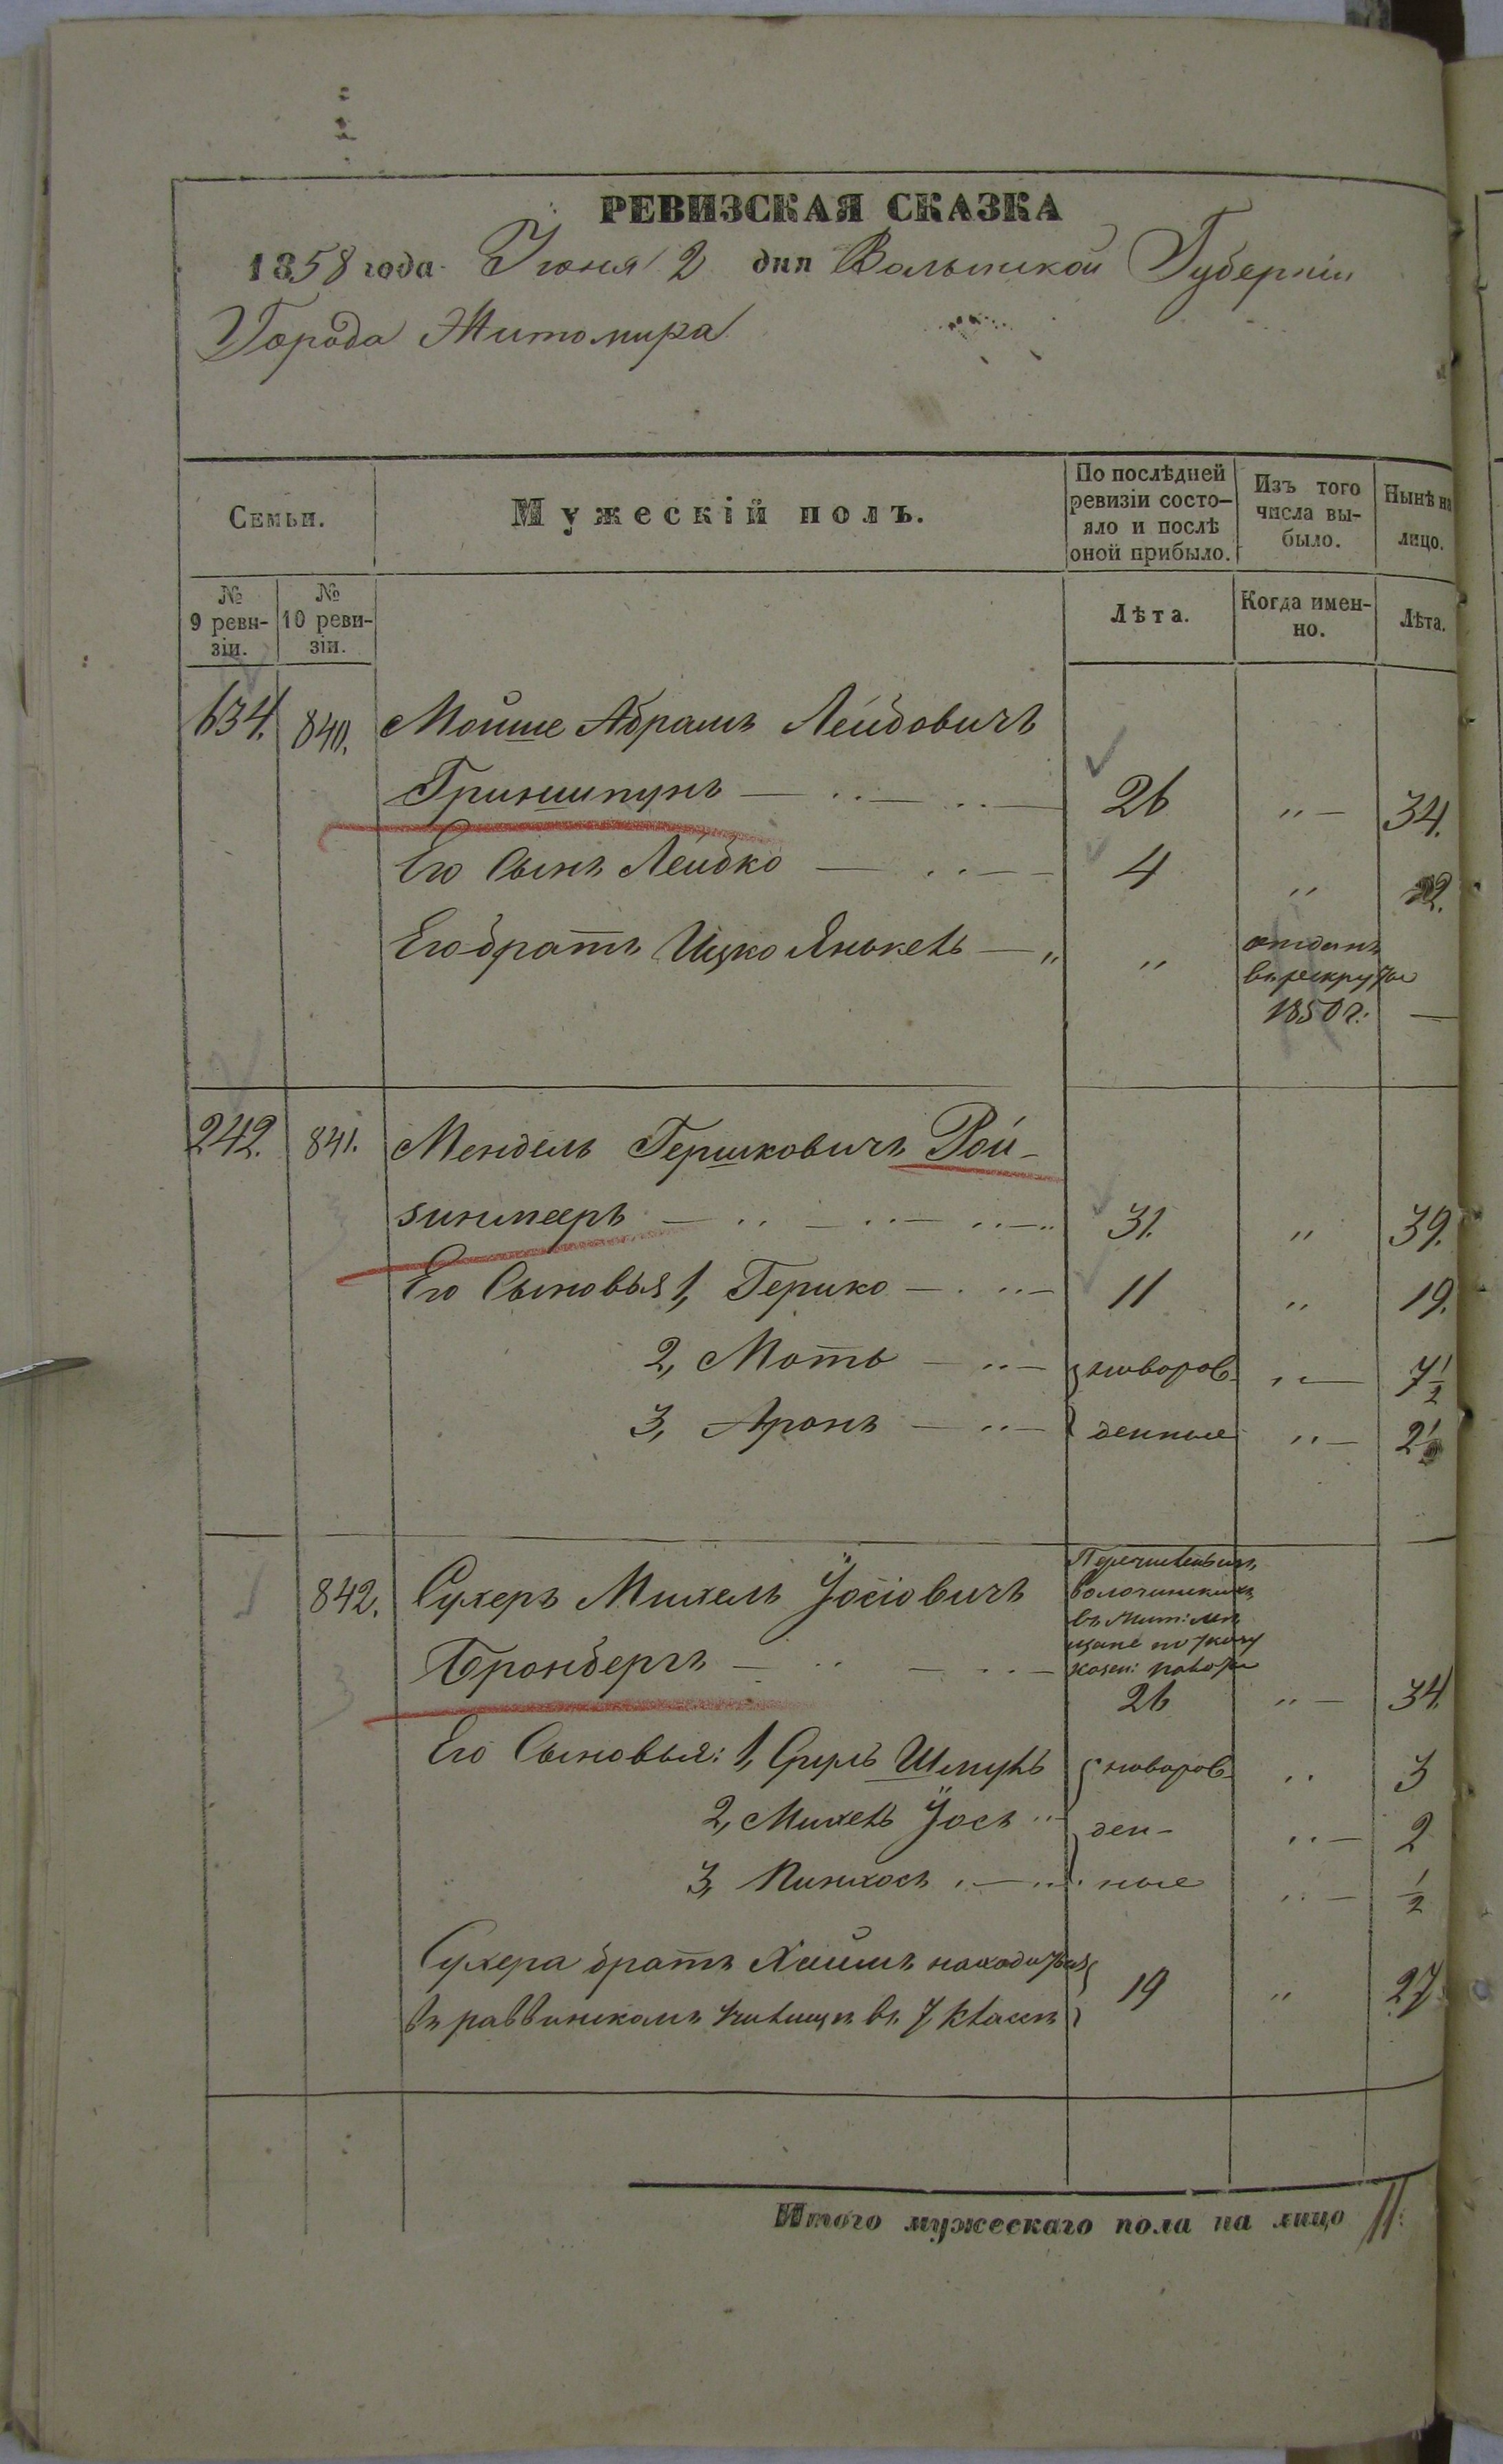 РЕВИЗСКАЯ СКАЗКА
1858 года Іюня 2 дня Волынской Губерніи
Города Житомира
Семьи.
Мужескій полъ.
По послѣдней ревизіи состо-
яло и послѣ
оной прибыло.
Изъ того числа вы-
было.
Нынѣ на
лицо.
№
9 реви-
зіи.
№
10 реви-
зіи.
Лѣта.
Когда имен-
но.
Лѣта.
634. 840. Мойше Абрамъ Лейбовичъ
Гриншпунъ — 26 " — 34.
Его Сынъ Лейбко — 4 "
Его братъ Ицко Янкель — " " отданъ
въ рекруты
1850 г. —
242. 841. Мендель Гершковичъ Рой-
зинмееръ — 31. " 39.
Его Сыновья 1, Гершко — 11 " 19.
2, Моть — новорож- " — 7½
3, Аронъ — денные " — 2½
842. Сухеръ Михель Іосіовичъ
Бронбергъ — 26 " — 34.
Его Сыновья: 1, Сруль Шмуль новорож- " 3
2, Михель Іось " ден- " — 2
3, Пинхосъ — ные " — ½
Сухера братъ Хаимъ находится
въ раввинскомъ училищѣ въ 7 классѣ 19 " 27.
Итого мужескаго пола на лицо 11.